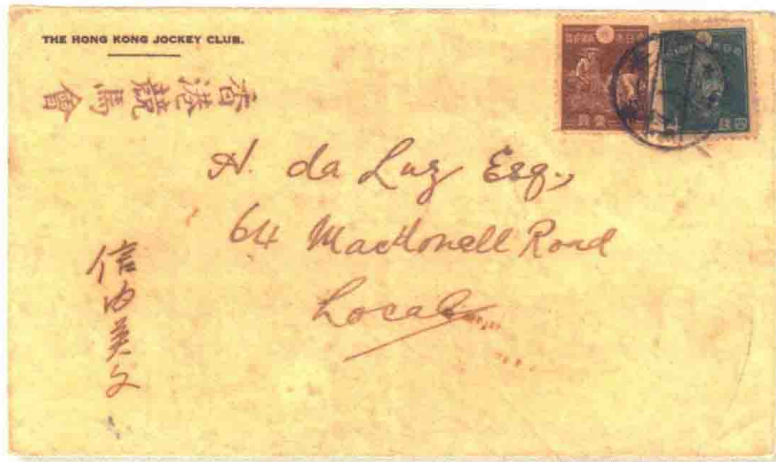 THE HONG KONG JOCKEY CLUB.
香港競馬會
A. da Luz Esq.,
64 MacDonell Road
Local
信内英文